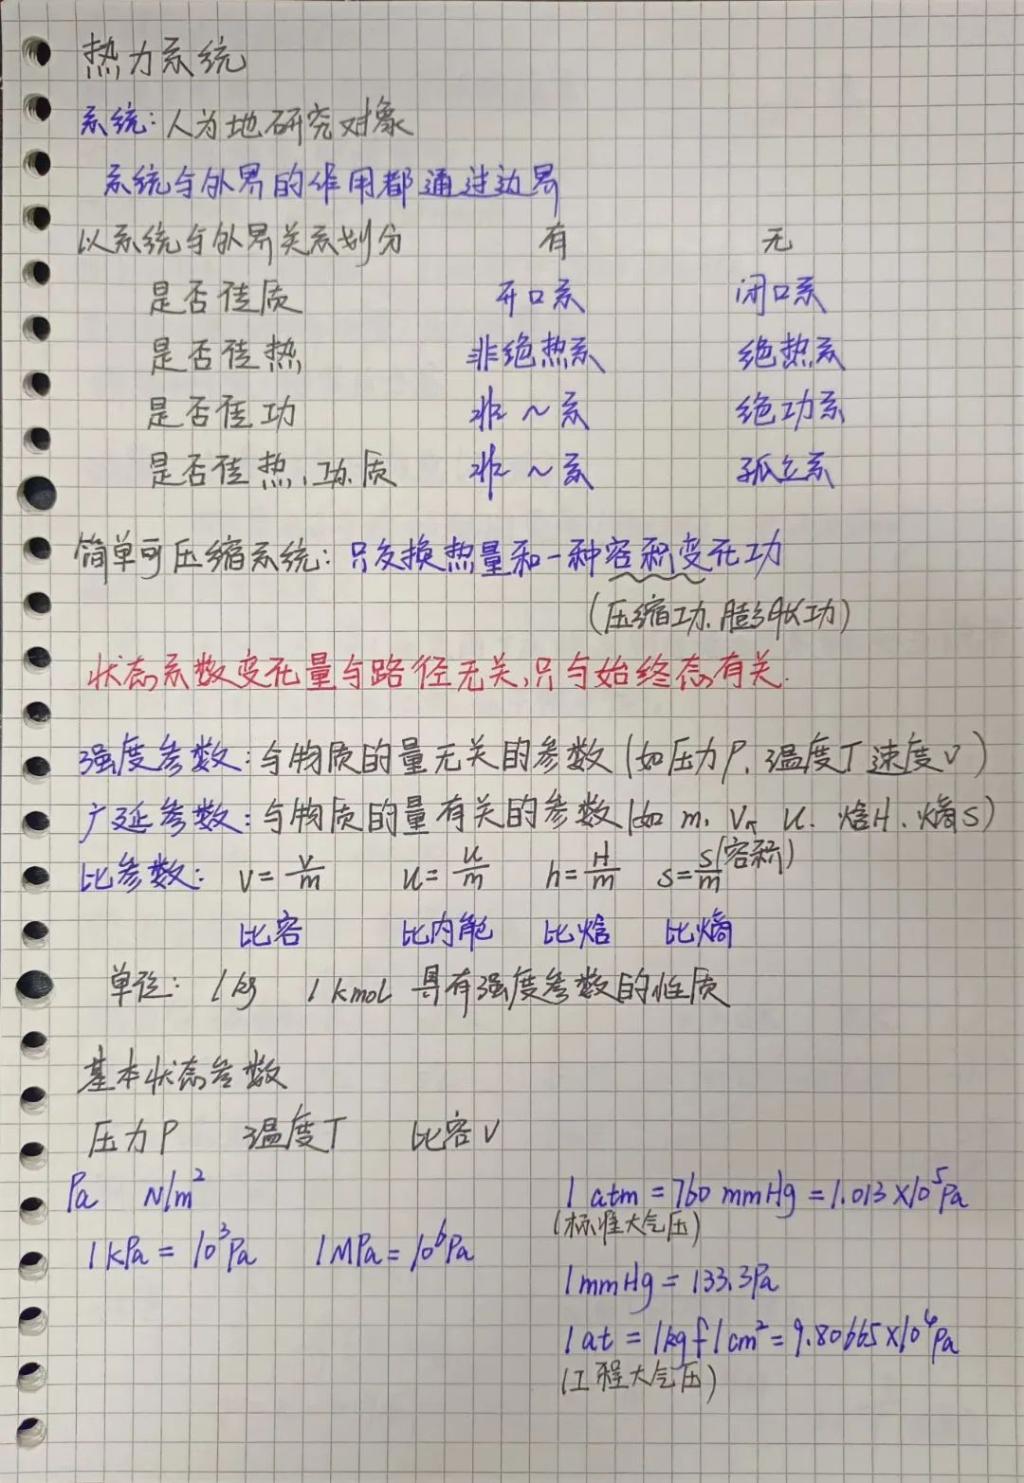 热力系统
系统:人为地研究对象
系统与外界的作用都通过边界
以系统与外界关系划分 有 无
是否传质 开口系 闭口系
是否传热 非绝热系 绝热系
是否传功 非~系 绝功系
是否传热、功、质 非~系 孤立系
简单可压缩系统:只交换热量和一种容积变化功
(压缩功、膨胀功)
状态系数变化量与路径无关,只与始终态有关.
强度参数:与物质的量无关的参数(如压力P、温度T速度v)
广延参数:与物质的量有关的参数(如 m、V、U、焓H、熵S)
(容积)
比参数: v=V/m u=U/m h=H/m s=S/m
比容 比内能 比焓 比熵
单位: 1kg 1kmol 具有强度参数的性质
基本状态参数
压力P 温度T 比容v
Pa N/m²
1kPa=10³Pa 1MPa=10⁶Pa
1 atm=760 mmHg=1.013×10⁵Pa
(标准大气压)
1mmHg=133.3Pa
1at=1kgf/cm²=9.80665×10⁴Pa
(工程大气压)